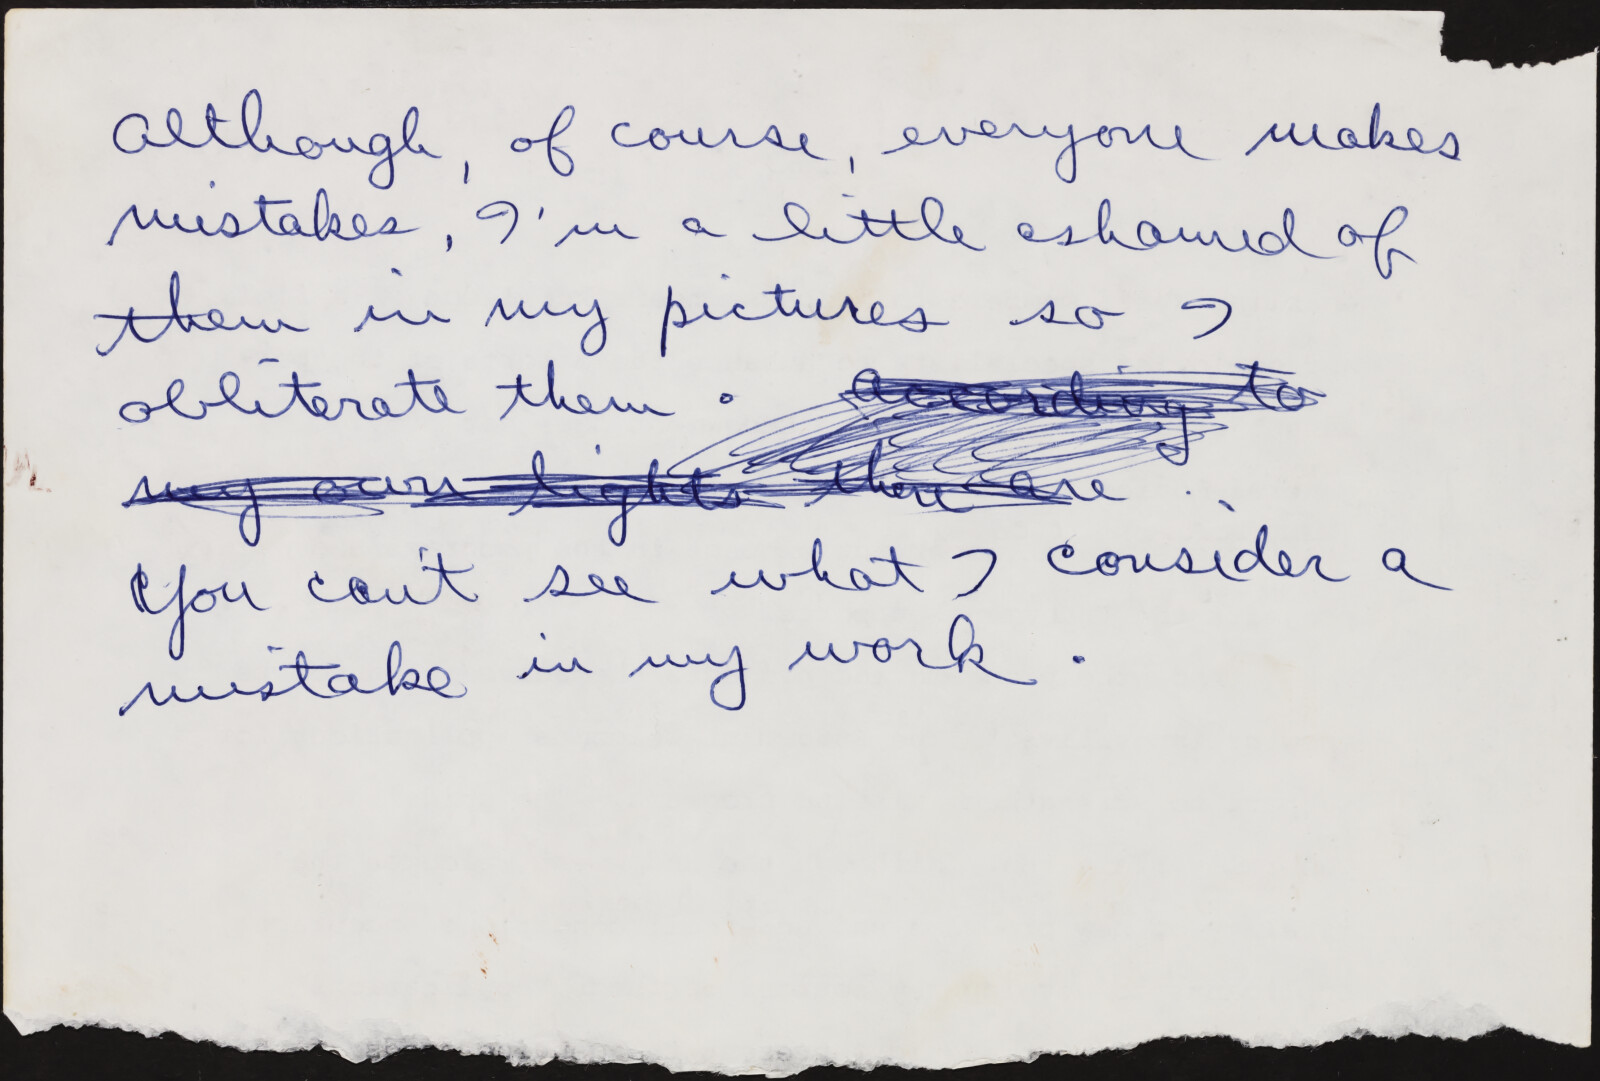 Although, of course, everyone makes
mistakes, I'm a little ashamed of
them in my pictures so I
obliterate them. according to
my own lights there are ..
You can't see what I consider a
mistake in my work.